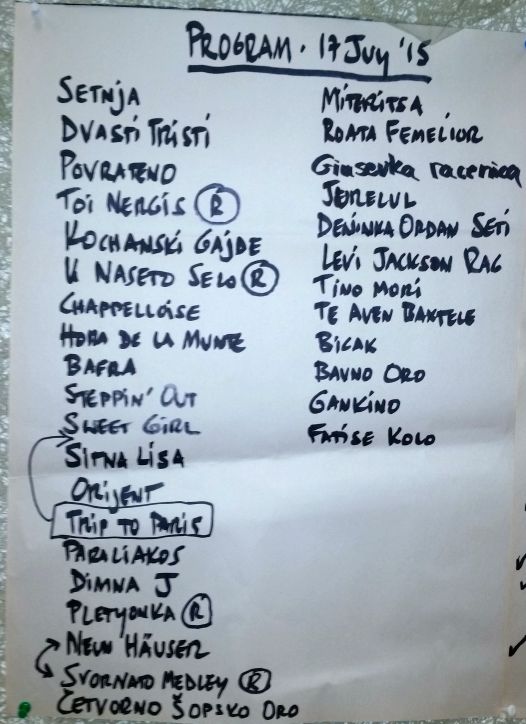 PROGRAM. 17 JULY '15
SETNJA
DVASTI TRISTI
POVRATENO
TOI NERGIS Ⓡ
KOCHANSKI GAJDE
U NASETO SELO Ⓡ
CHAPPELLOISE
HORA DE LA MUNTE
BAFRA
STEPPIN' OUT
SWEET GIRL
SITNA LISA
ORIJENT
TRIP TO PARIS
PARALIAKOS
DIMNA J
PLETYONKA Ⓡ
NEUN HÄUSER
SVORNATO MEDLEY Ⓡ
ČETVORNO ŠOPSKO ORO
MITERITSA
ROATA FEMEILOR
Ginsevka racenica
JERELUL
DENINKA ORDAN SETI
LEVI JACKSON RAG
TINO MORI
TE AVEN BAXTELE
BICAK
BAVNO ORO
GANKINO
FATISE KOLO